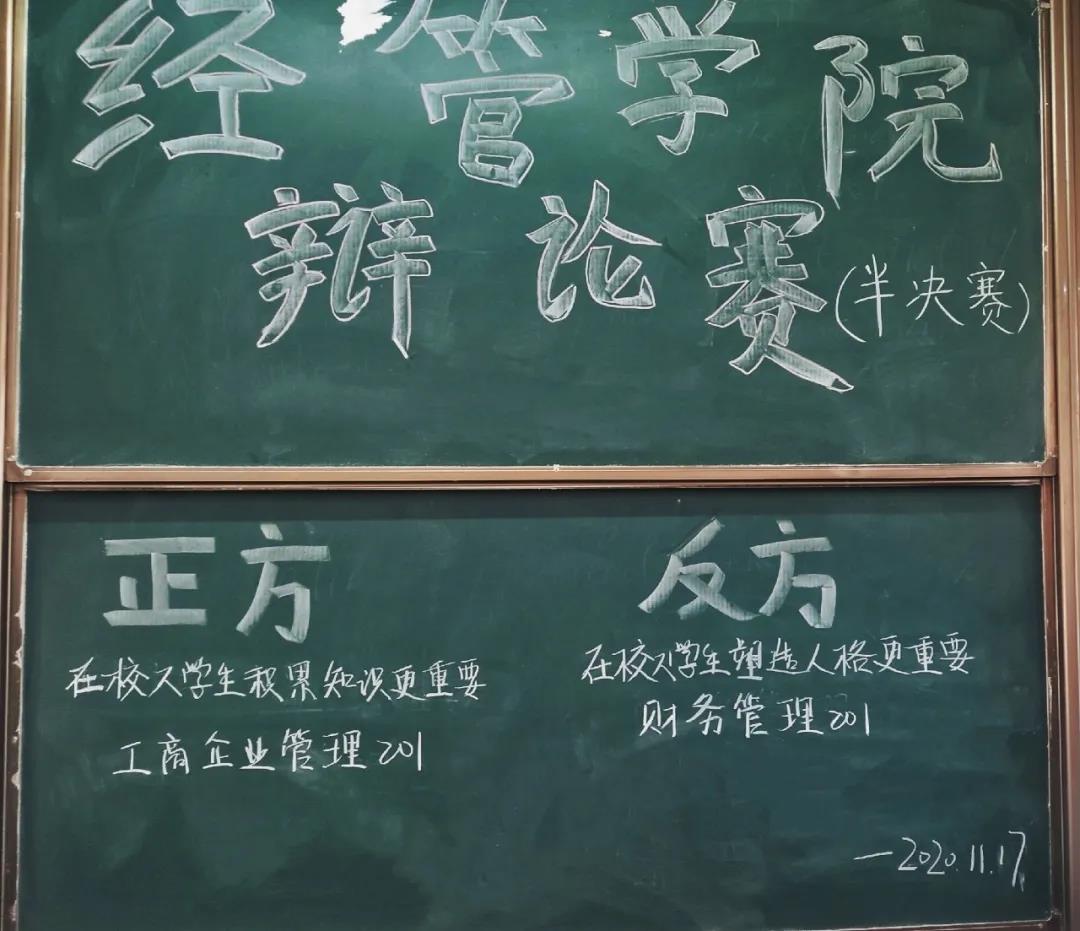 经管学院
辩论赛(半决赛)
正方
在校大学生积累知识更重要
工商企业管理201
反方
在校大学生塑造人格更重要
财务管理201
—2020.11.17